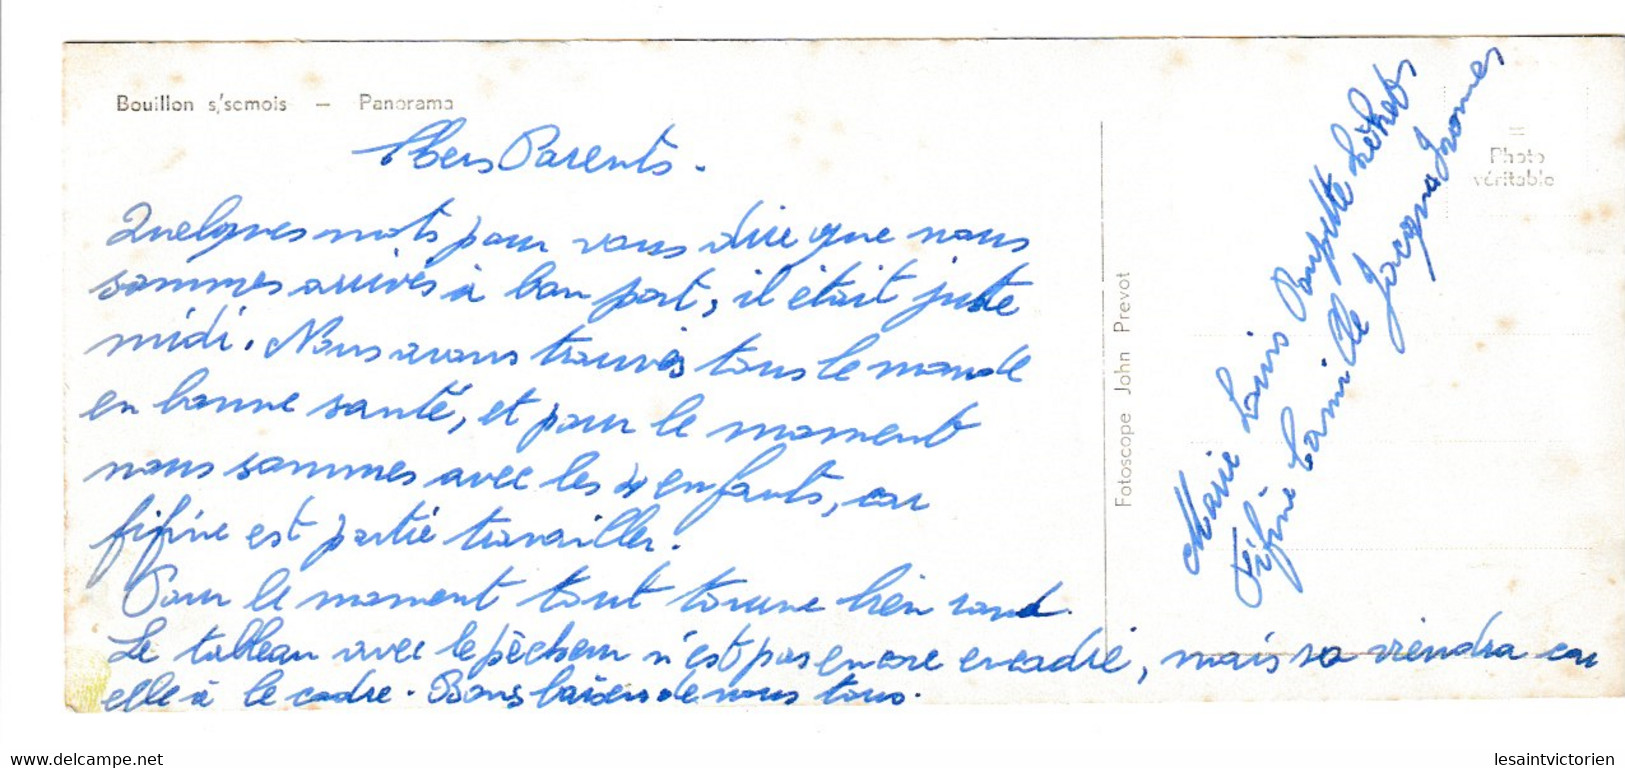 Bouillon s/semois — Panorama
Chers Parents.
Quelques mots pour vous dire que nous
sommes arrivés à bon port, il était juste
midi. Nous avons trouvés tous le monde
en bonne santé, et pour le moment
nous sommes avec les 4 enfants, car
fifine est partie travailler.
Pour le moment tout tourne bien rond.
Le tableau avec le pêcheur n'est pas encore encadré, mais sa viendra car
elle à le cadre. Bons baisers de nous tous.
Fotoscope John Prevot
Marie Louis Poupette
Fifine Camille Jacques
=
Photo
véritable
www.delcampe.net
lesaintvictorien